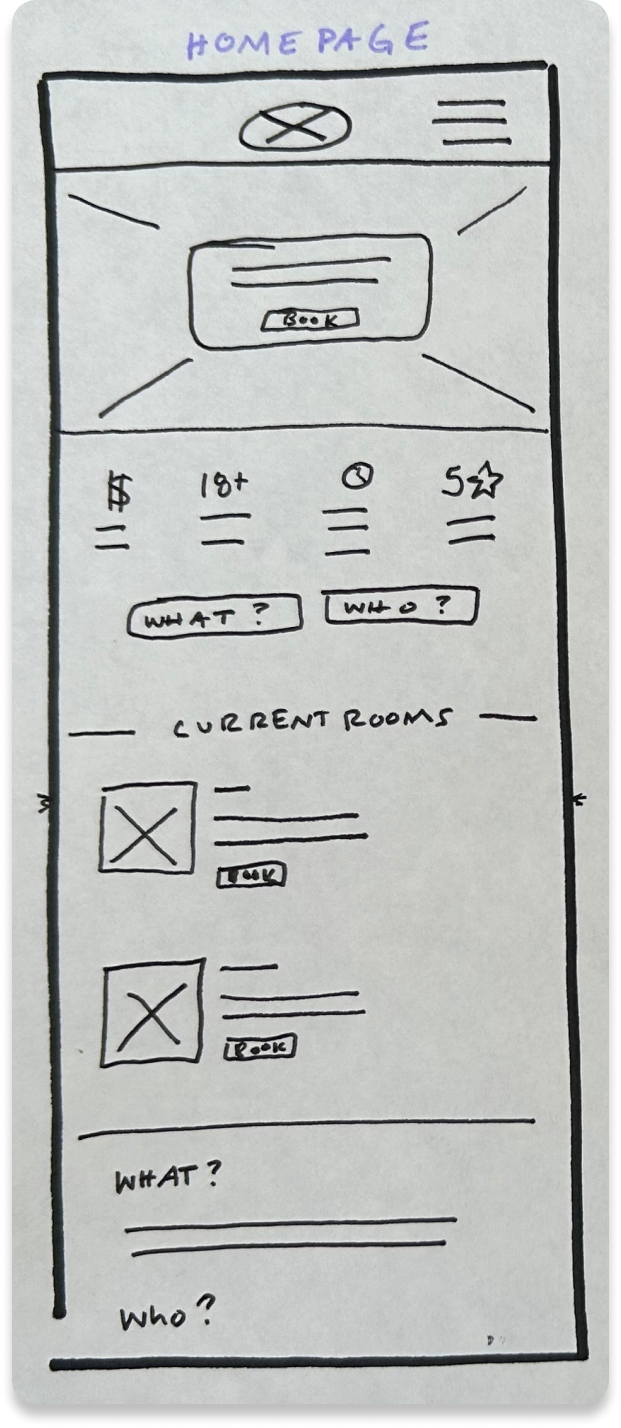 HOME PAGE
BOOK
$ 18+ 5☆
WHAT? WHO?
CURRENT ROOMS
BOOK
BOOK
WHAT?
Who?